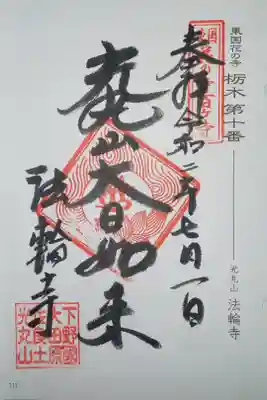 東国花の寺
栃木 第十番
光丸山 法輪寺
奉拝 令和二年七月一日
光丸山大日如来
法輪寺
下野國
大田原
佐良土
光丸山